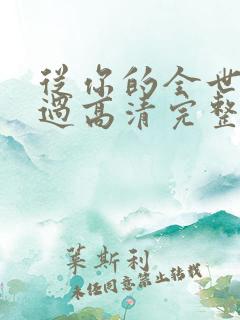 從你的全世
過高清完整
萊斯利
未经同意禁止转载